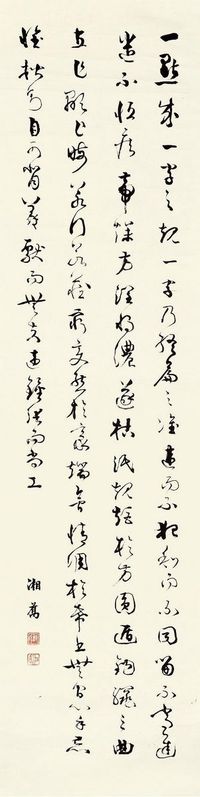 一點成一字之規一字乃終篇之准違而不犯和而不同留不常遲
遣不恆疾帶燥方潤將濃遂枯泯規矩於方圓遁鉤繩之曲
直乍顯乍晦若行若藏窮變態於豪端合情調於紙上無間心手忘
懷楷則自可背羲獻而無失違鍾張而尚工
湘